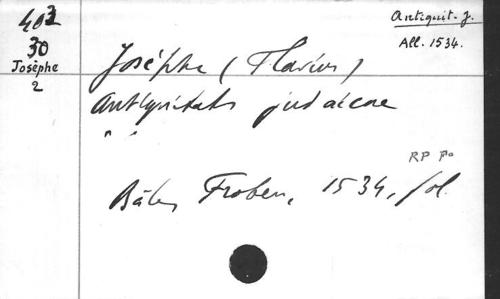 403
30
Josèphe
2
Antiquit. j.
All. 1534.
Josèphe (Flavius)
Antiquitates judaicae
RP Fo
Bâle, Froben, 1534, fol.